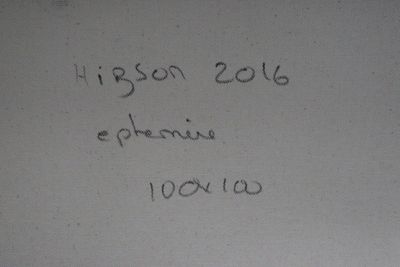 Hirson 2016
ephemere
100x100